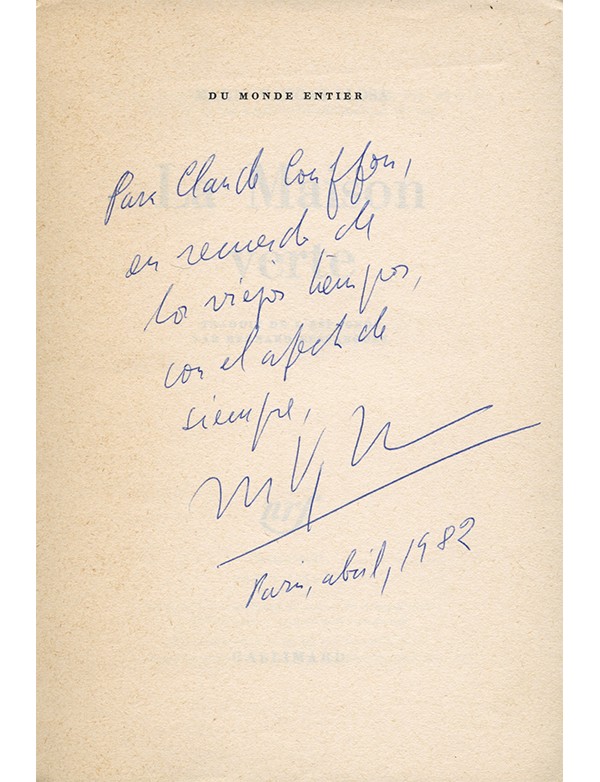 DU MONDE ENTIER
Para Claude Couffon,
en recuerdo de
los viejos tiempos,
con el afecto de
siempre,
La Maison
verte
Paris, abril, 1982
GALLIMARD